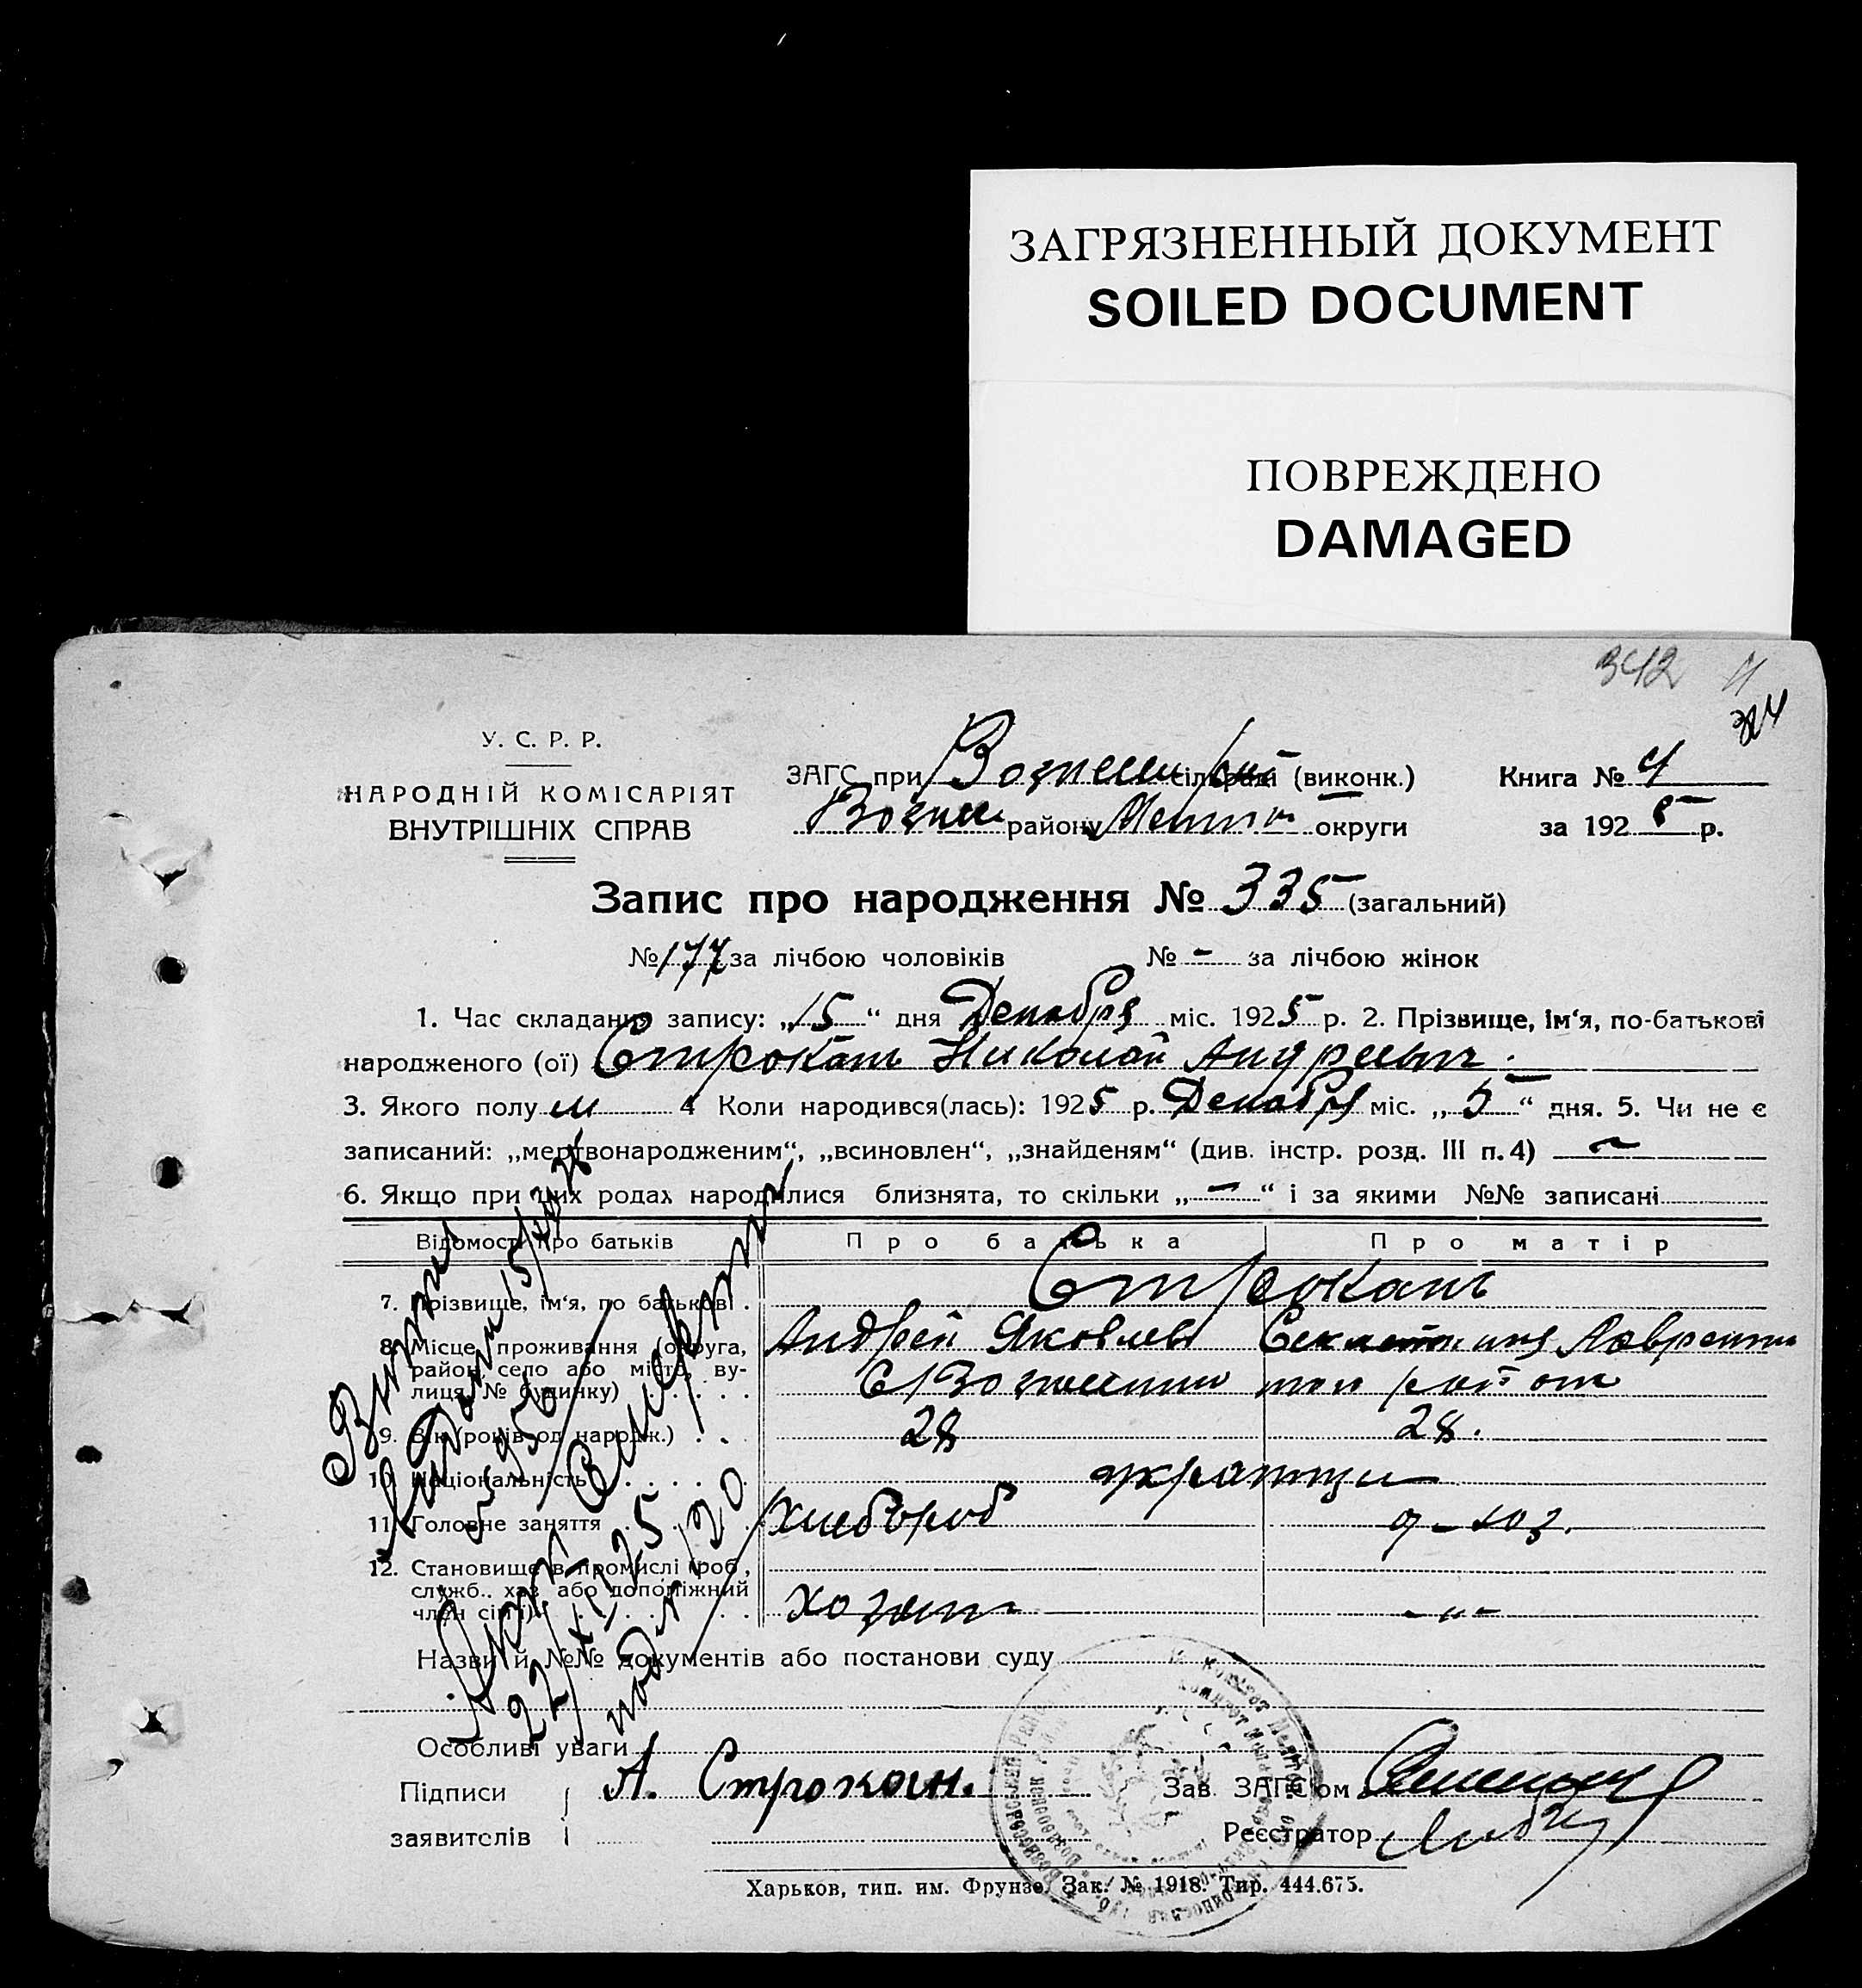 ЗАГРЯЗНЕННЫЙ ДОКУМЕНТ
SOILED DOCUMENT
ПОВРЕЖДЕНО
DAMAGED
342
У. С. Р. Р.
НАРОДНІЙ КОМІСАРІЯТ
ВНУТРІШНІХ СПРАВ
ЗАГС при сільраді (виконк.)
району округи
Книга № 4
за 1925 р.
Запис про народження № 335 (загальний)
№ 177 за лічбою чоловіків № - за лічбою жінок
1. Час складання запису: „15“ дня Декабря міс. 1925 р. 2. Прізвище, ім‘я, по-батькові
народженого (ої) Строкань Николай Андреевич.
3. Якого полу м 4 Коли народився(лась): 1925 р. Декабря міс. „5“ дня. 5. Чи не є
записаний: „мертвонародженим“, „всиновлен“, „знайденям“ (див. інстр. розд. III п. 4) ~
6. Якщо при цих родах народилися близнята, то скільки „-“ і за якими №№ записані
Відомості про батьків Про батька Про матір
7. Прізвище, ім‘я, по батькові . Строкань
Андрей Яковлев
8. Місце проживання (округа,
район, село або місто, ву-
лиця, № будинку)
9. Вік (років од народж.) 28 28.
10. Національність украинцы
11. Головне заняття Хлебороб д-хоз.
12. Становище в промислі (роб.,
служб., хаз. або допоміжний
член сім‘ї) хозяин -"-
Назви й №№ документів або постанови суду
Особливі уваги
Підписи
заявителів
А. Строкань.
Зав. ЗАГС‘ом
Реєстратор
Харьков, тип. им. Фрунзе. Зак. № 1918. Тир. 444.675.